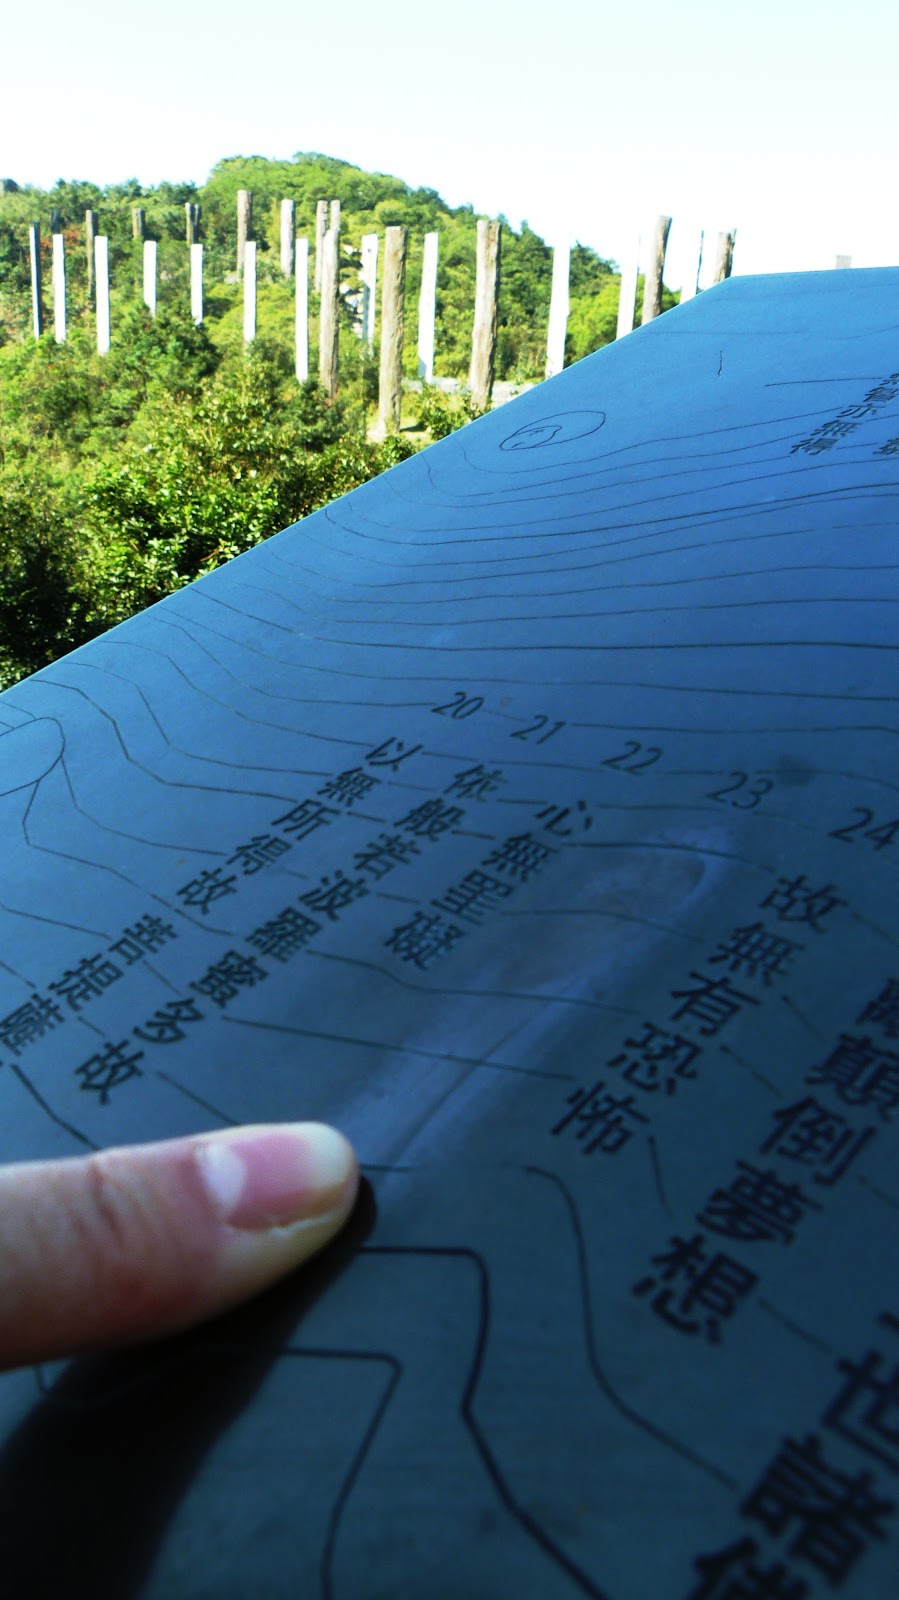 亦無得
20 21 22 23 24
以無所得故
菩提薩
依般若波羅蜜多故
心無罣礙
故無有恐怖
顛倒夢想
世諸